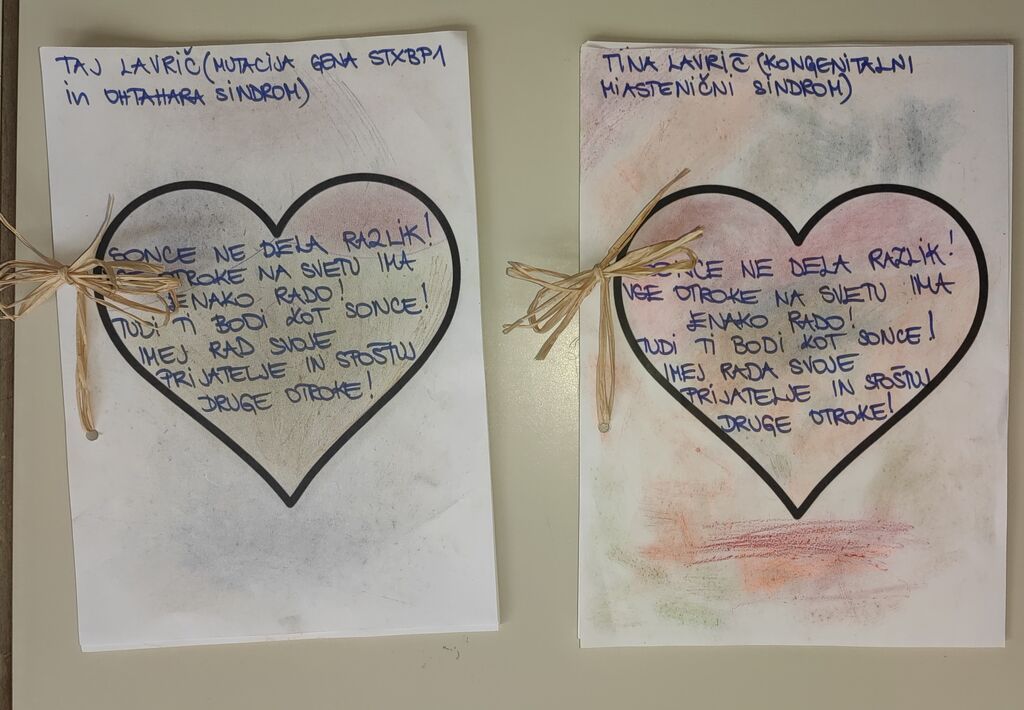 TAJ LAVRIČ (MUTACIJA GENA STXBP1
in OHTAHARA SINDROM)
SONCE NE DELA RAZLIK!
OTROKE NA SVETU IMA
ENAKO RADO!
TUDI TI BODI KOT SONCE!
IMEJ RAD SVOJE
PRIJATELJE IN SPOŠTUJ
DRUGE OTROKE!
TINA LAVRIČ (KONGENITALNI
MIASTENIČNI SINDROM)
SONCE NE DELA RAZLIK!
VSE OTROKE NA SVETU IMA
ENAKO RADO!
TUDI TI BODI KOT SONCE!
IMEJ RADA SVOJE
PRIJATELJE IN SPOŠTUJ
DRUGE OTROKE!